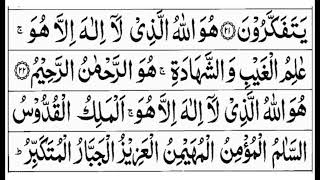 يَتَفَكَّرُوۡنَ ﴿۲۱﴾ هُوَ اللّٰهُ الَّذِىۡ لَاۤ اِلٰهَ اِلَّا هُوَ ۚ
عٰلِمُ الۡغَيۡبِ وَالشَّهَادَةِ ۚ هُوَ الرَّحۡمٰنُ الرَّحِيۡمُ ﴿۲۲﴾
هُوَ اللّٰهُ الَّذِىۡ لَاۤ اِلٰهَ اِلَّا هُوَ ۚ اَلۡمَلِكُ الۡقُدُّوۡسُ
السَّلٰمُ الۡمُؤۡمِنُ الۡمُهَيۡمِنُ الۡعَزِيۡزُ الۡجَبَّارُ الۡمُتَكَبِّرُ ؕ